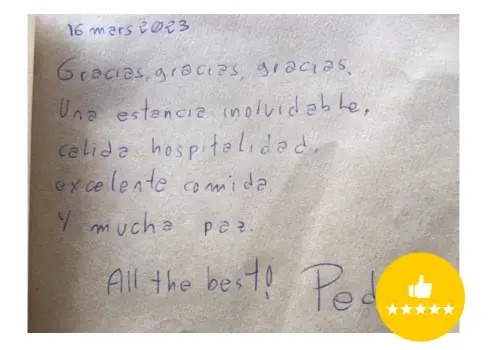 16 mars 2023
Gracias, gracias, gracias.
Una estancia inolvidable,
calida hospitalidad,
excelente comida
Y mucha paz.
All the best!